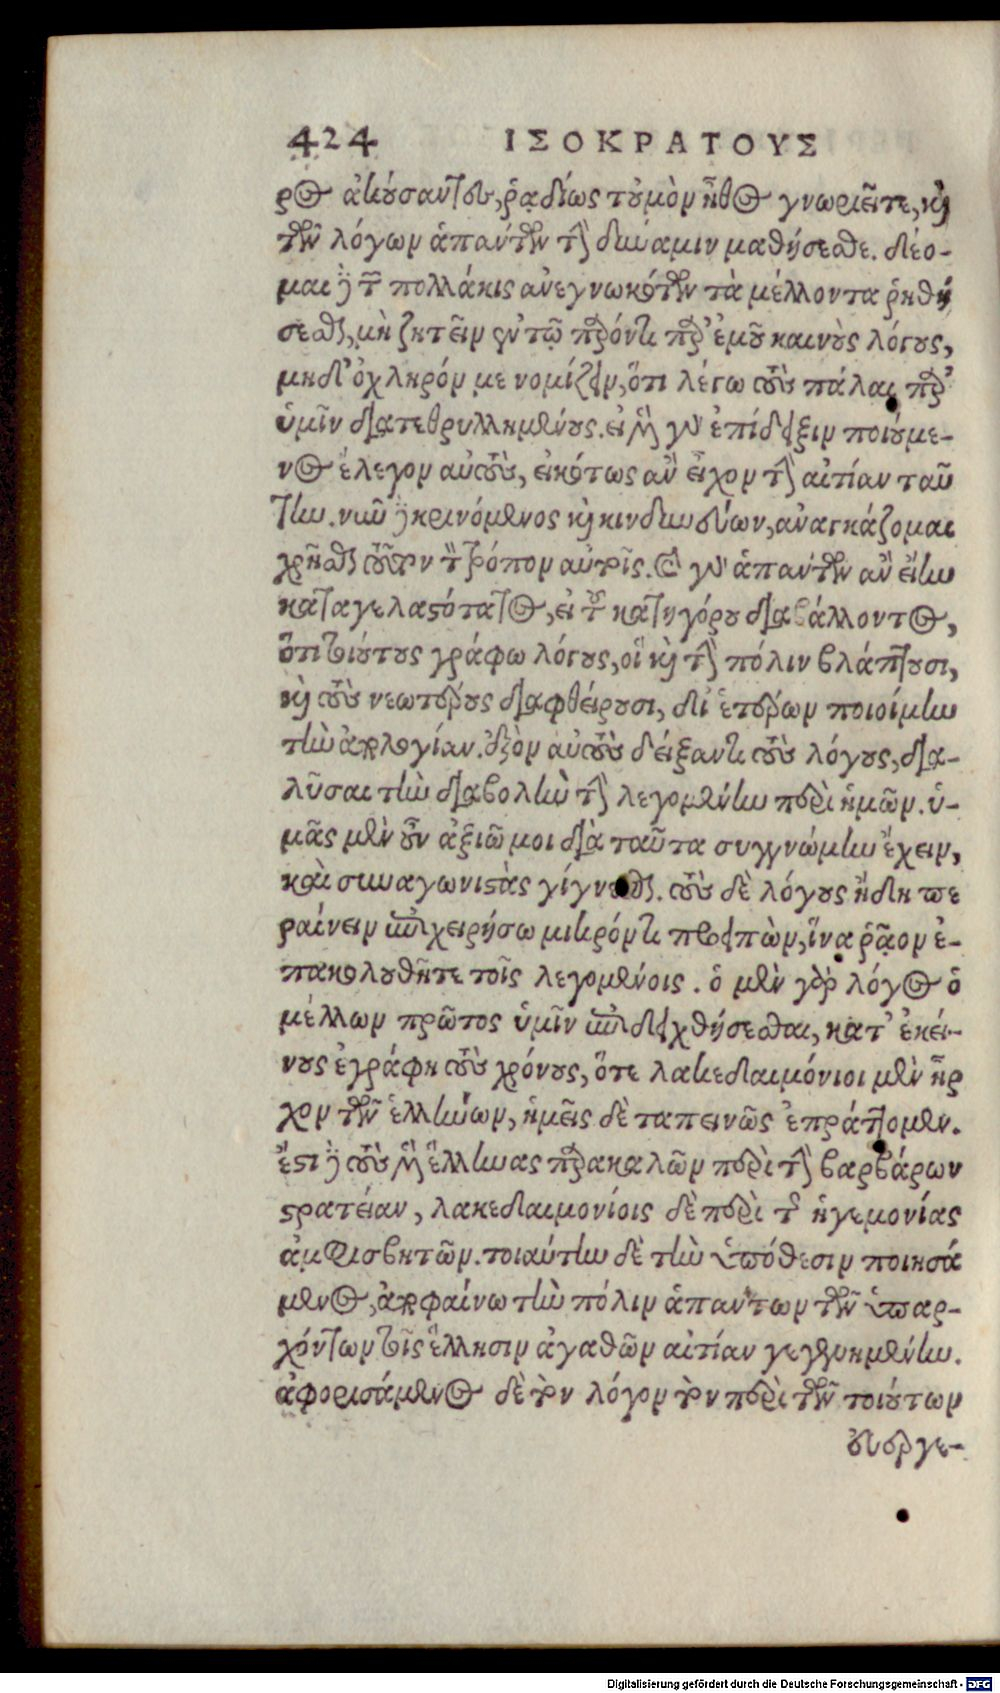 424 ΙΣΟΚΡΑΤΟΥΣ
ρος ἀκούσαντες, ῥᾳδίως τοὐμὸν ἦθος γνωριεῖτε, καὶ
τῶν λόγων ἁπάντων τὴν δύναμιν μαθήσεσθε. δέο-
μαι δὲ τῶν πολλάκις ἀνεγνωκότων τὰ μέλλοντα ῥηθή
σεσθαι, μὴ ζητεῖν ἐν τῷ παρόντι παρ' ἐμοῦ καινοὺς λόγους,
μηδ' ὀχληρόν με νομίζειν, ὅτι λέγω τοὺς πάλαι παρ'
ὑμῖν διατεθρυλλημένους. εἰ μὲν γὰρ ἐπίδειξιν ποιούμε-
νος ἔλεγον αὐτοὺς, εἰκότως ἂν εἶχον τὴν αἰτίαν ταύ
την. νῦν δὲ κρινόμενος καὶ κινδυνεύων, ἀναγκάζομαι
χρῆσθαι τοῦτον τὸν τρόπον αὐτοῖς. καὶ γὰρ ἁπάντων ἂν εἴην
καταγελαστότατος, εἰ τοῦ κατηγόρου διαβάλλοντος,
ὅτι τοιούτους γράφω λόγους, οἳ καὶ τὴν πόλιν βλάπτουσι,
καὶ τοὺς νεωτέρους διαφθείρουσι, δι' ἑτέρων ποιοίμην
τὴν ἀπολογίαν. ἐξὸν αὐτοὺς δείξαντι τοὺς λόγους, δια-
λῦσαι τὴν διαβολὴν τὴν λεγομένην περὶ ἡμῶν. ὑ-
μᾶς μὲν οὖν ἀξιῶ μοι διὰ ταῦτα συγγνώμην ἔχειν,
καὶ συναγωνιστὰς γίγνεσθαι. τοὺς δὲ λόγους ἤδη πε
ραίνειν ἐπιχειρήσω μικρόν τι προειπὼν, ἵνα ῥᾷον ἐ-
πακολουθῆτε τοῖς λεγομένοις. ὁ μὲν γὰρ λόγος ὁ
μέλλων πρῶτος ὑμῖν ἐπιδειχθήσεσθαι, κατ' ἐκεί-
νους ἐγράφη τοὺς χρόνους, ὅτε λακεδαιμόνιοι μὲν ἦρ
χον τῶν ἑλλήνων, ἡμεῖς δὲ ταπεινῶς ἐπράττομεν.
ἔστι δὲ τοὺς μὲν ἕλληνας παρακαλῶν περὶ τὴν βαρβάρων
στρατείαν, λακεδαιμονίοις δὲ περὶ τῆς ἡγεμονίας
ἀμφισβητῶν. τοιαύτην δὲ τὴν ὑπόθεσιν ποιησά
μενος, ἀποφαίνω τὴν πόλιν ἁπάντων τῶν ὑπαρ-
χόντων τοῖς ἕλλησιν ἀγαθῶν αἰτίαν γεγενημένην.
ἀφορισάμενος δὲ τὸν λόγον τὸν περὶ τῶν τοιούτων
εὐεργε-
Digitalisierung gefördert durch die Deutsche Forschungsgemeinschaft - DFG